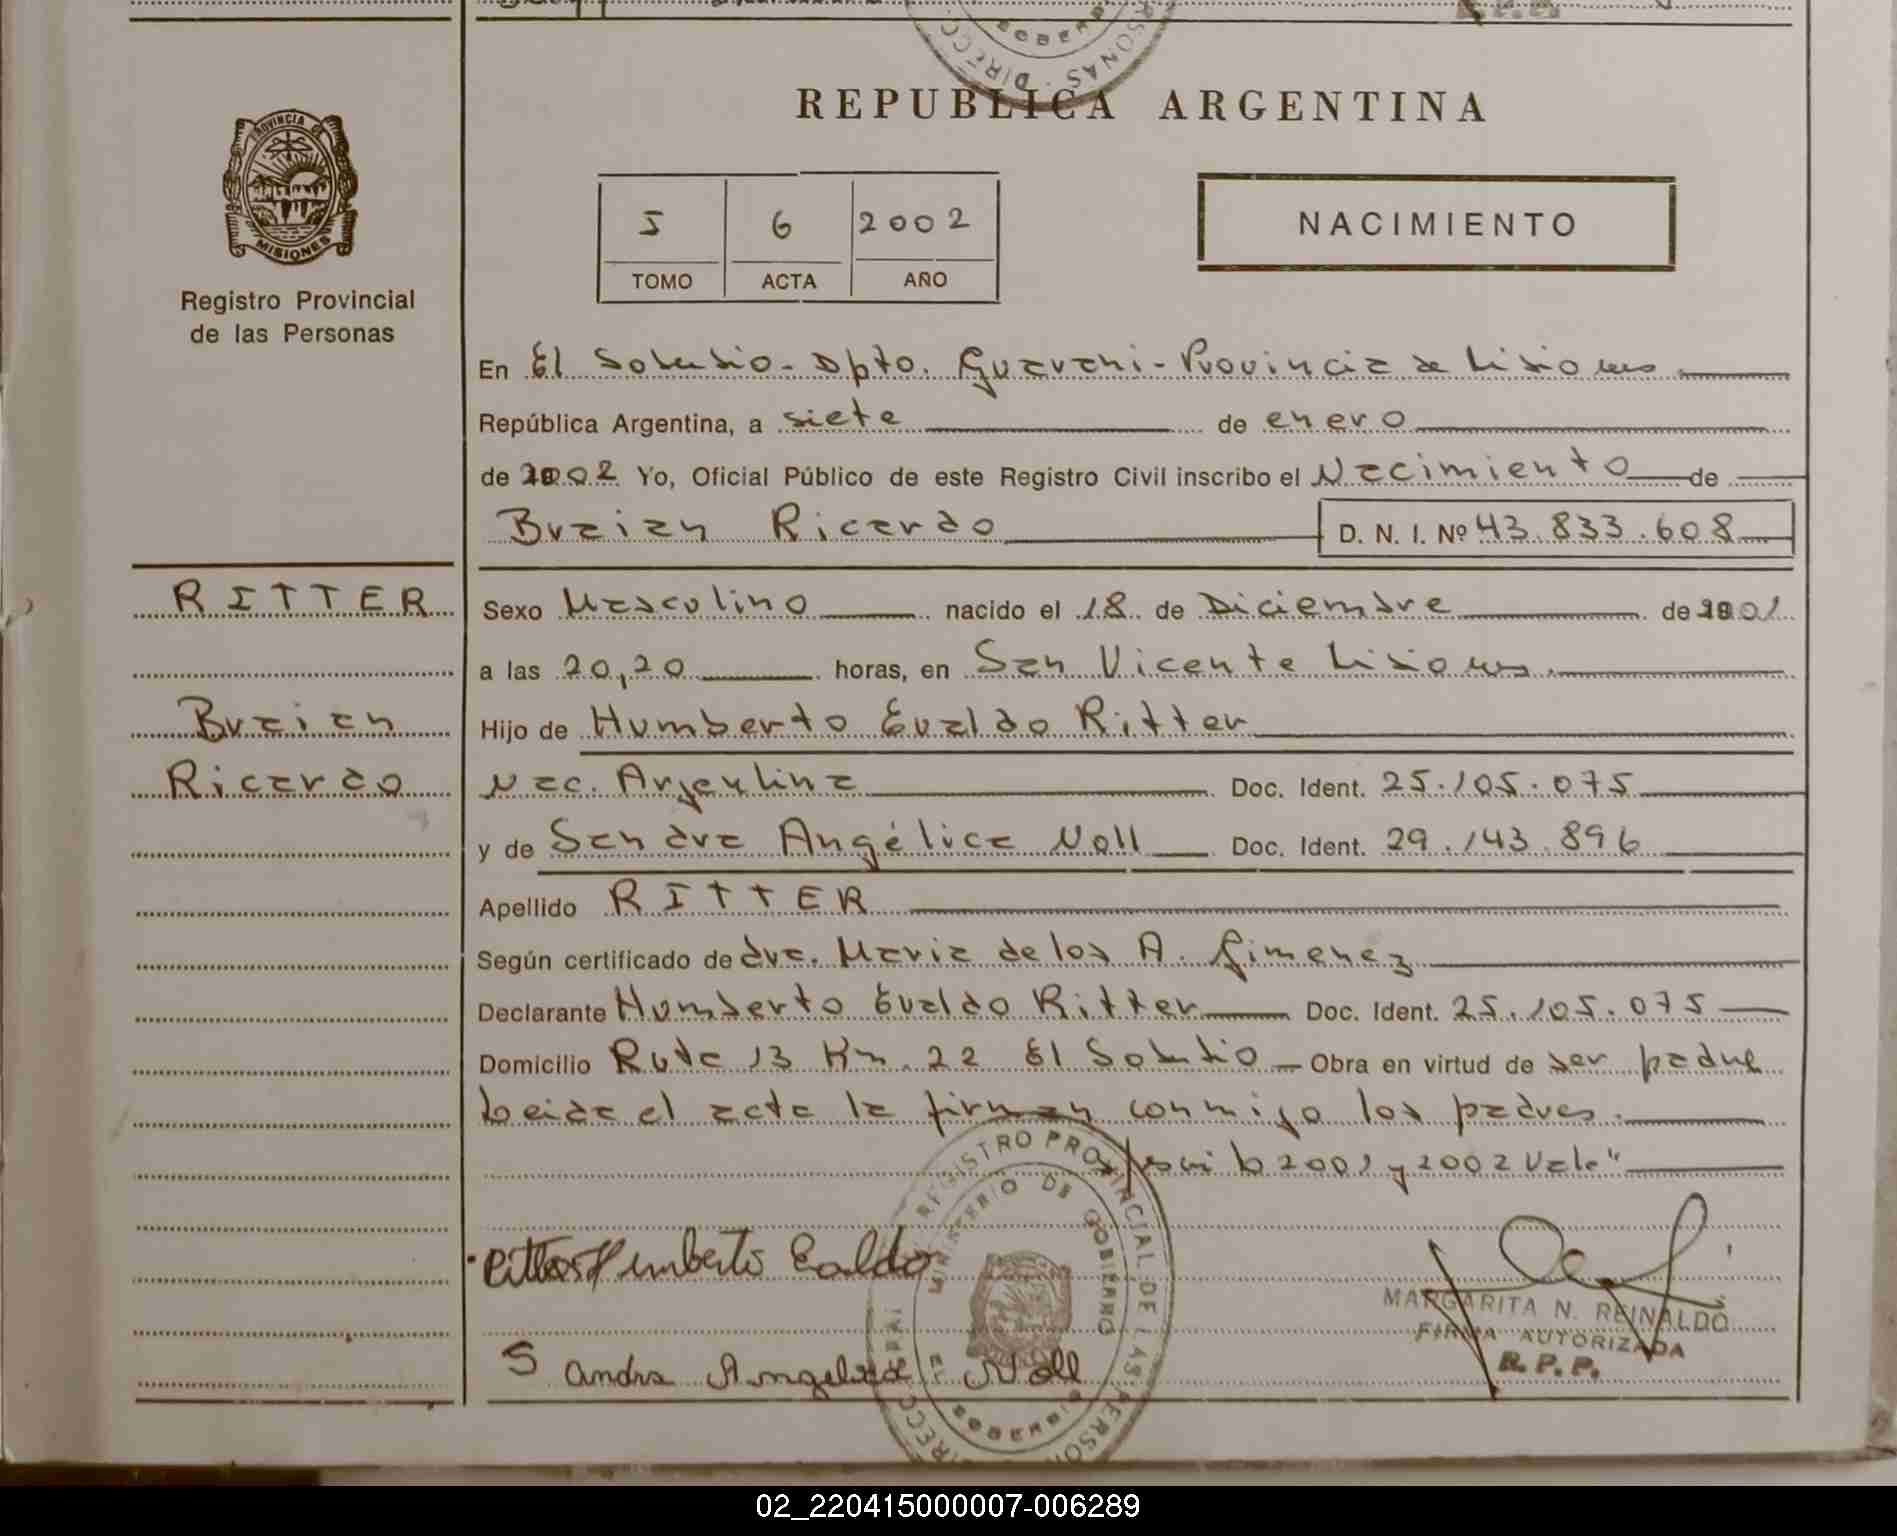 REPUBLICA ARGENTINA
PROVINCIA DE
MISIONES
Registro Provincial
de las Personas
5 6 2002
TOMO ACTA AÑO
NACIMIENTO
En El Soberbio - Dpto. Guarani - Provincia de Misiones
República Argentina, a siete de enero
de 2002 Yo, Oficial Público de este Registro Civil inscribo el Nacimiento de
Braian Ricardo D. N. I. Nº 43.833.608
RITTER
Sexo Masculino nacido el 18 de Diciembre de 2001
a las 20,20 horas, en San Vicente Misiones.
Braian
Hijo de Humberto Evaldo Ritter
Ricardo
Nac. Argentina Doc. Ident. 25.105.075
y de Sandra Angélica Noll Doc. Ident. 29.143.896
Apellido RITTER
Según certificado de dra. Maria de los A. Gimenez
Declarante Humberto Evaldo Ritter Doc. Ident. 25.105.075
Domicilio Ruta 13 Km. 22 El Soberbio Obra en virtud de ser padre
Leida el acta la firman conmigo los padres.
2001 y 2002 Vale"
REGISTRO PROVINCIAL DE LAS PERSONAS
MINISTERIO DE GOBIERNO
EL SOBERBIO
Ritter Humberto Evaldo
MARGARITA N. REINALDO
FIRMA AUTORIZADA
R. P. P.
Sandra Angelica Noll
02_220415000007-006289